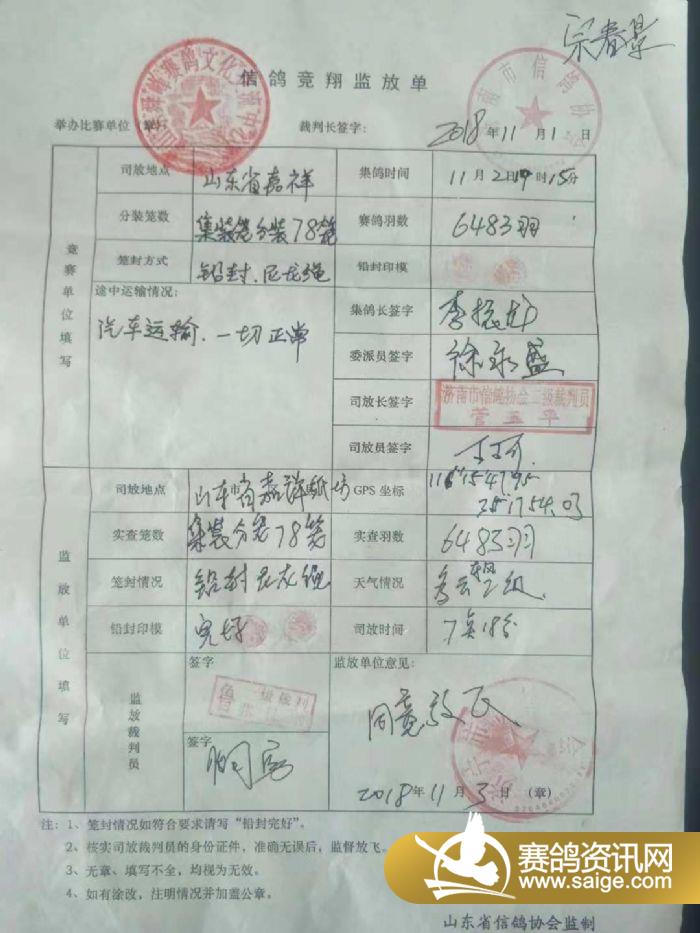 宗春景
信鸽竞翔监放单
举办比赛单位（章）：
裁判长签字：
2018年11月1日
竞赛单位填写
司放地点 山东省嘉祥 集鸽时间 11月2日19时15分
分装笼数 集装笼分装78笼 赛鸽羽数 6483羽
笼封方式 铅封.尼龙绳 铅封印模
途中运输情况：
汽车运输.一切正常
集鸽长签字 李振
委派员签字 徐永盛
司放长签字 济南市信鸽协会二级裁判员
管玉平
司放员签字
监放单位填写
司放地点 山东省嘉祥 坊 GPS 坐标 116°154795
351754.03
实查笼数 集装分装78笼 实查羽数 6483羽
笼封情况 铅封尼龙绳 天气情况 多云 级
铅封印模 完好 司放时间 7点18分
监放裁判员
签字
级裁判
签字
监放单位意见：
同意放飞
2018年11月3日（章）
注：1、笼封情况如符合要求请写“铅封完好”。
2、核实司放裁判员的身份证件，准确无误后，监督放飞。
3、无章、填写不全，均视为无效。
4、如有涂改，注明情况并加盖公章。
山东省信鸽协会监制
赛鸽资讯网
www.saige.com